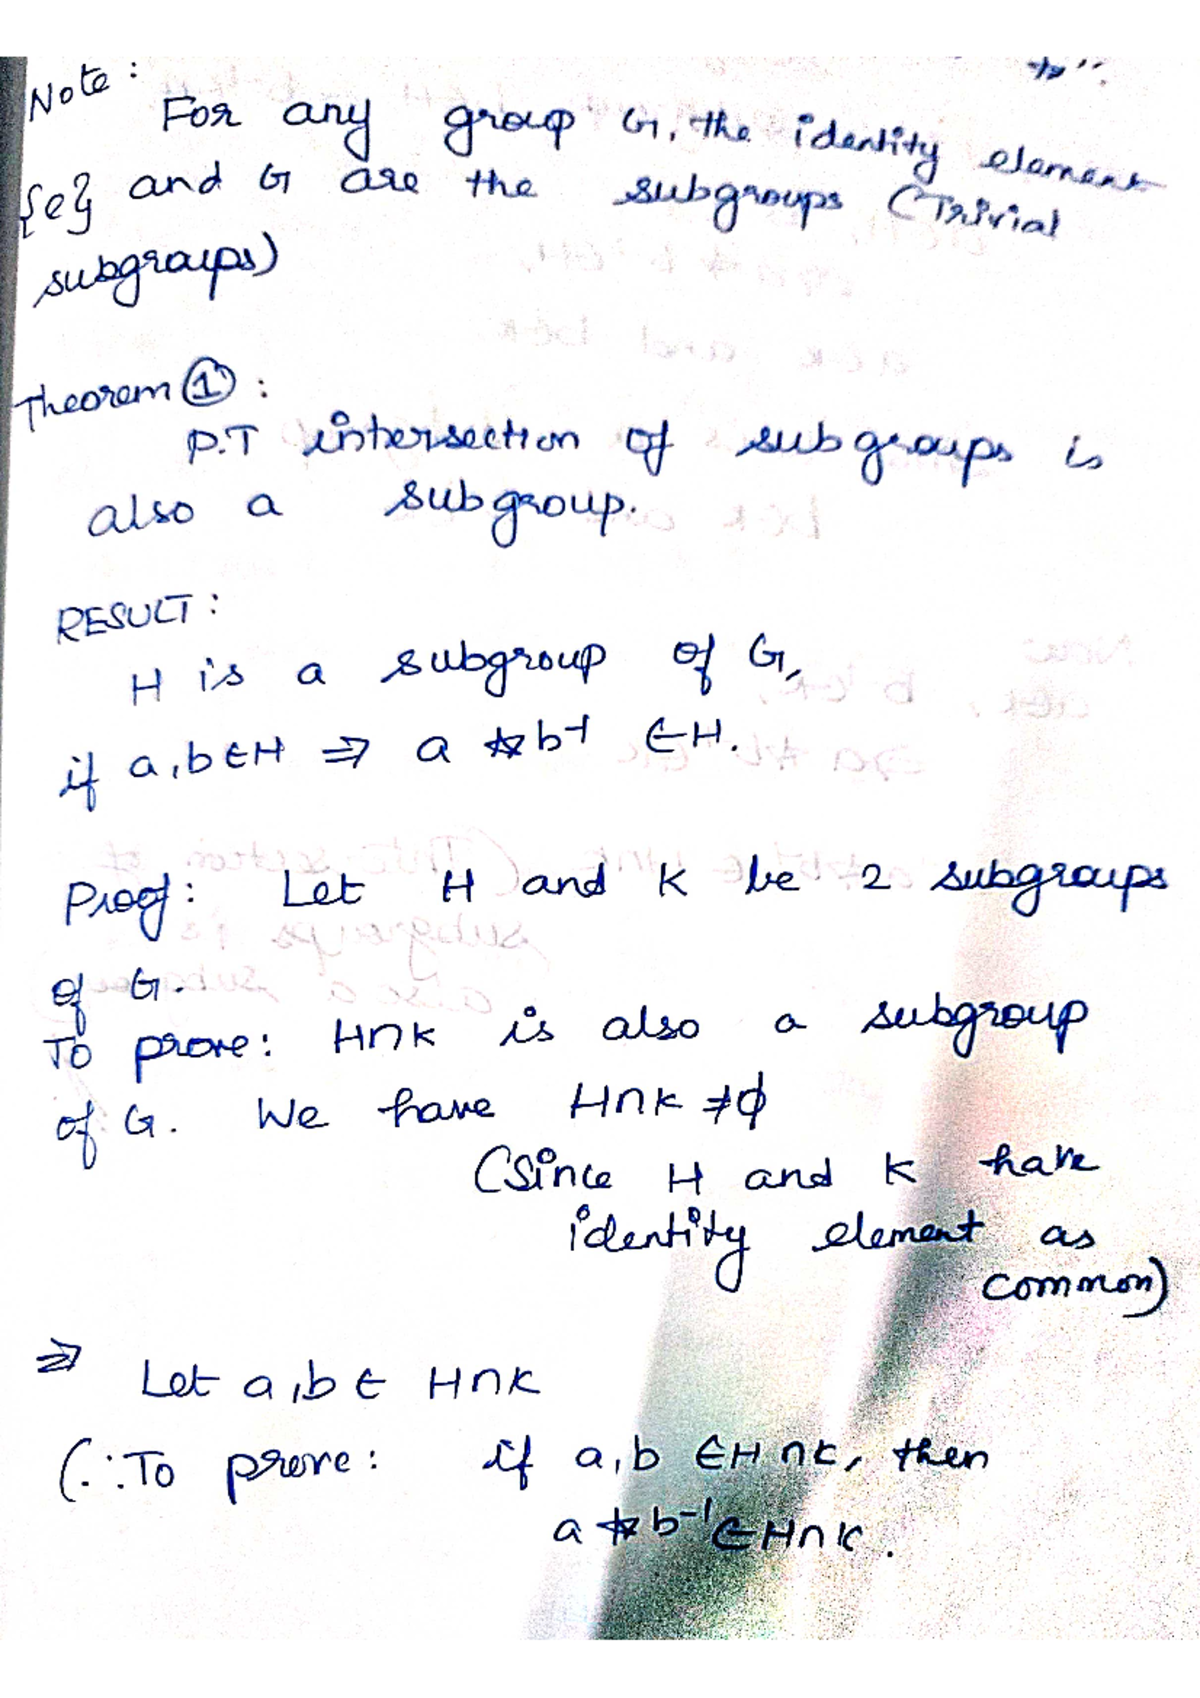 *".
Note:
For any group G, the identity element
{e} and G are the subgroups (Trivial
subgroups)
Theorem ①:
P.T intersection of subgroups is
also a subgroup.
RESULT:
H is a subgroup of G,
if a, b ∈ H ⇒ a * b⁻¹ ∈ H.
Proof: Let H and K be 2 subgroups
of G.
To prove: H∩K is also a subgroup
of G. We have H∩K ≠ ϕ
(Since H and K have
identity element as
common)
⇒ Let a, b ∈ H∩K
(∴ To prove: if a, b ∈ H∩K, then
a * b⁻¹ ∈ H∩K.